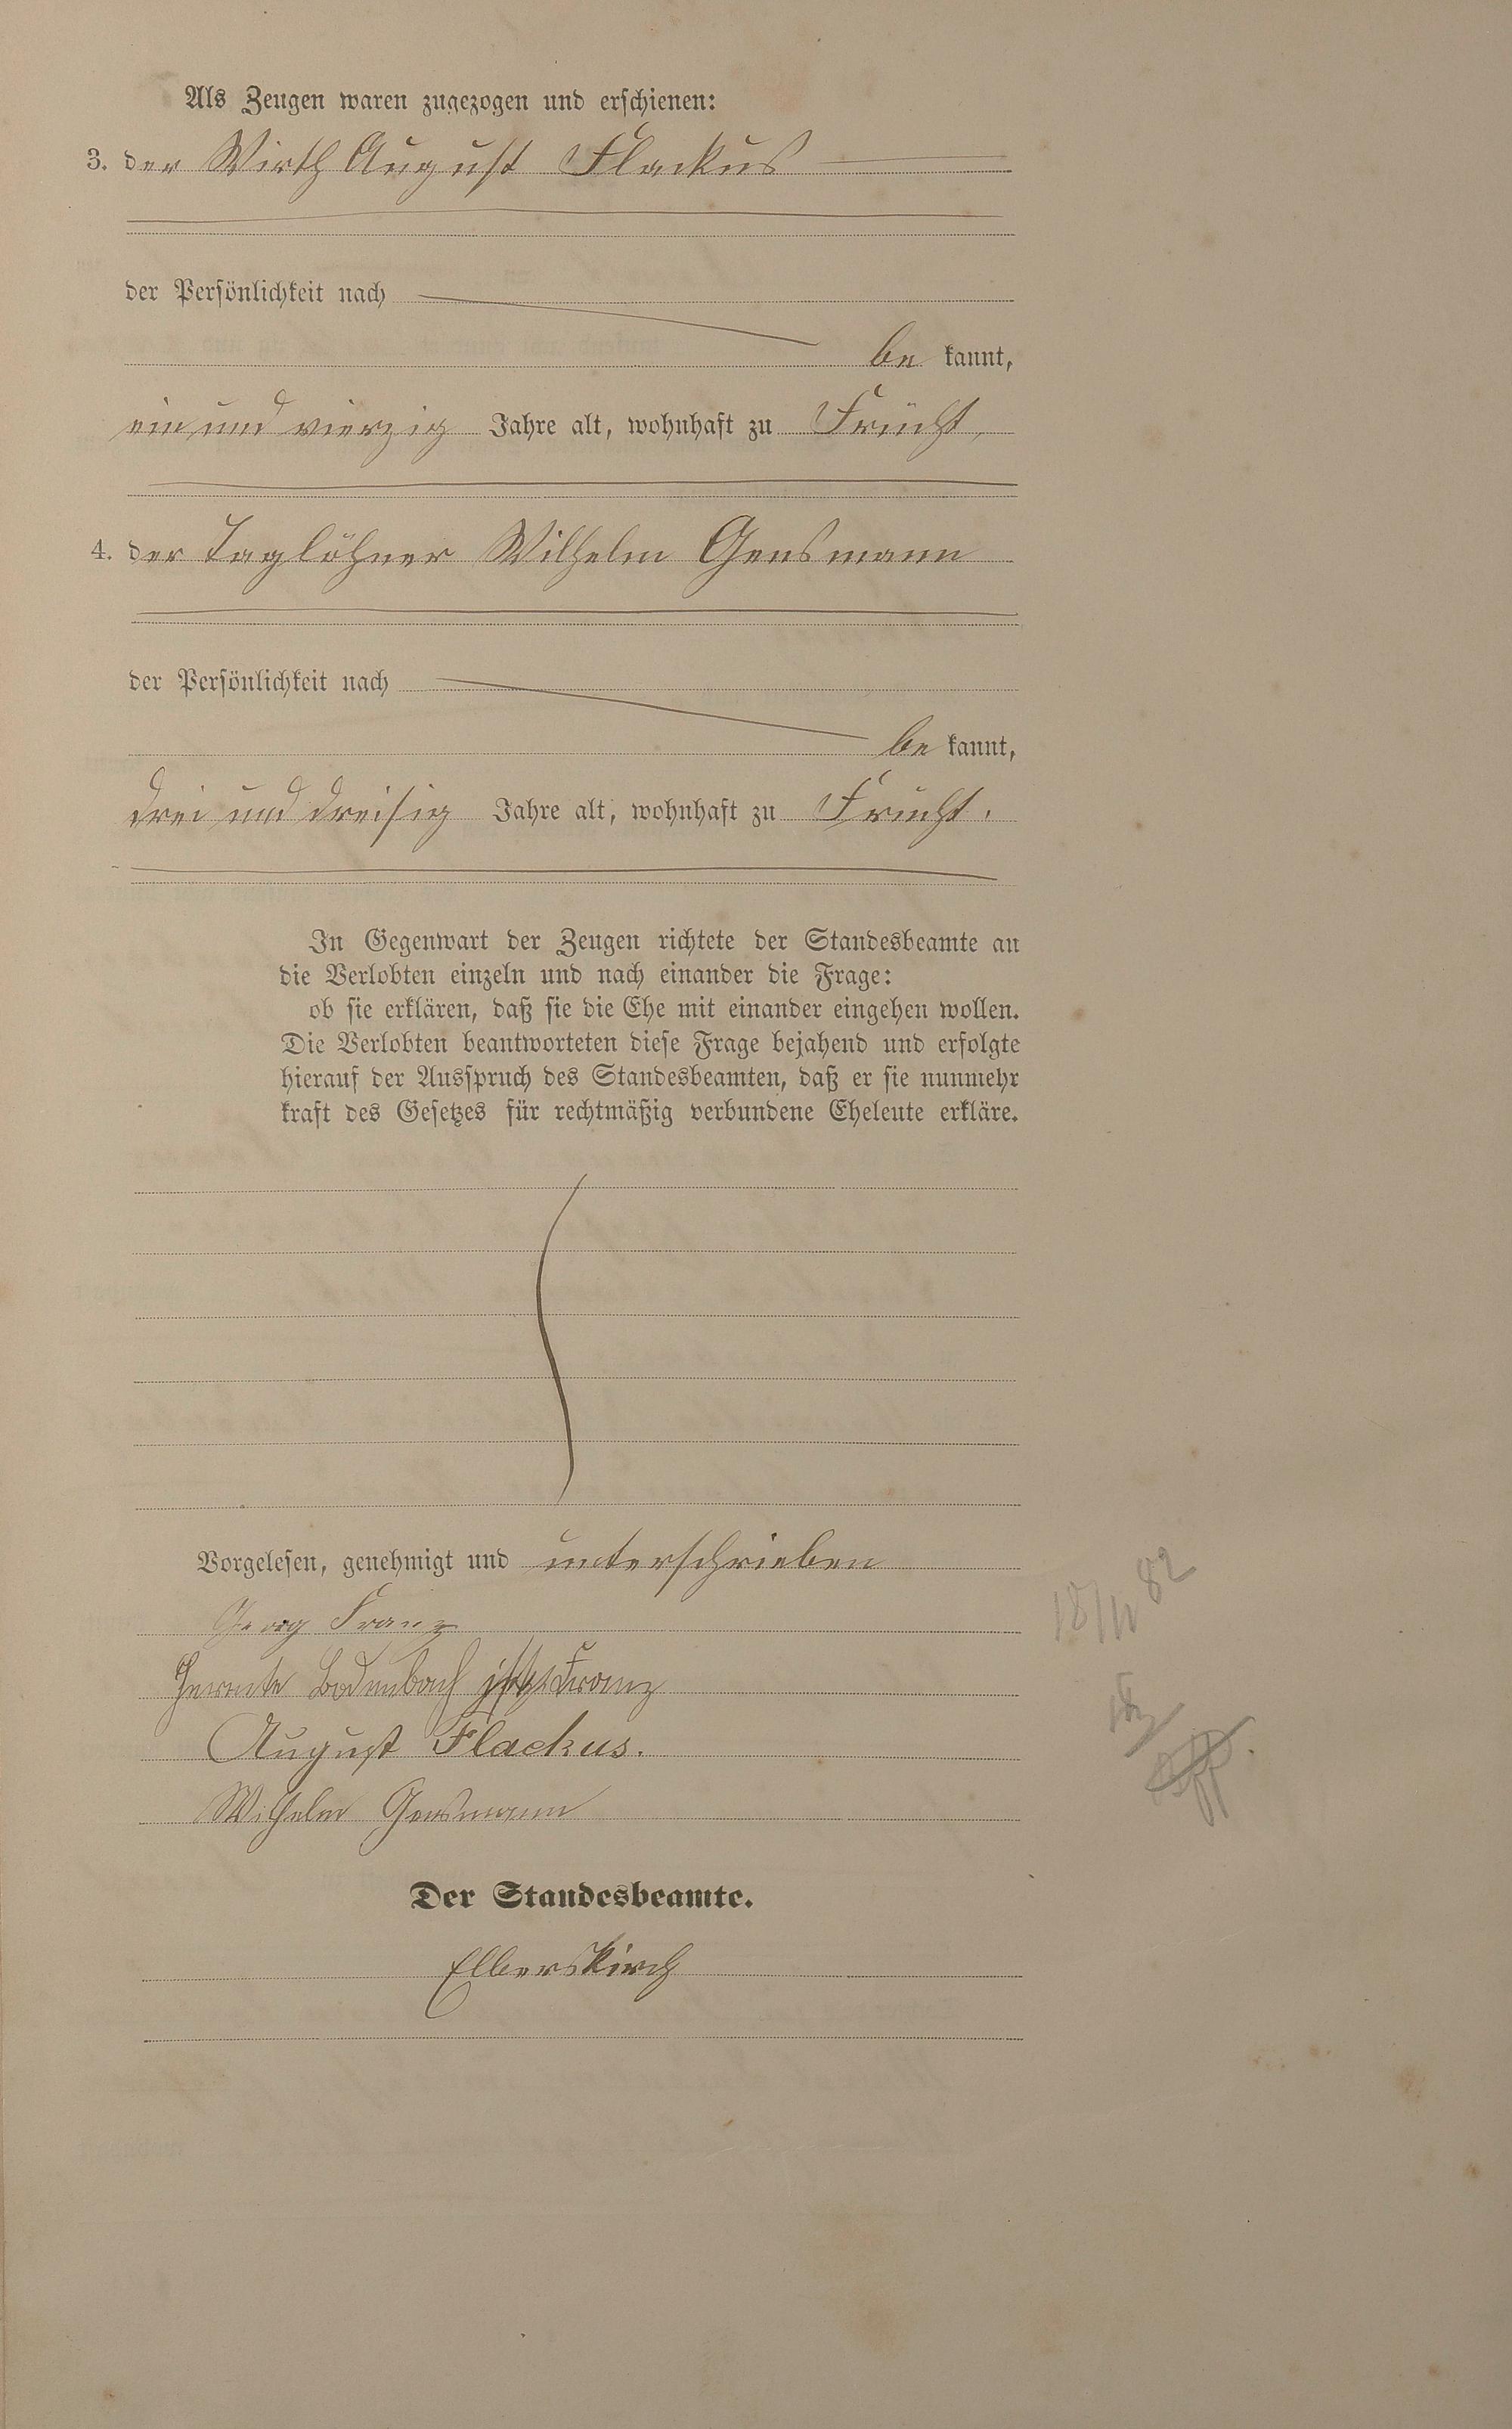 Als Zeugen waren zugezogen und erschienen:
3. der Wirth August Flackus
der Persönlichkeit nach
be kannt,
ein und vierzig Jahre alt, wohnhaft zu Frücht,
4. der Taglöhner Wilhelm Gensmann
der Persönlichkeit nach
be kannt,
drei und dreisig Jahre alt, wohnhaft zu Frücht.
In Gegenwart der Zeugen richtete der Standesbeamte an
die Verlobten einzeln und nach einander die Frage:
ob sie erklären, daß sie die Ehe mit einander eingehen wollen.
Die Verlobten beantworteten diese Frage bejahend und erfolgte
hierauf der Ausspruch des Standesbeamten, daß er sie nunmehr
kraft des Gesetzes für rechtmäßig verbundene Eheleute erkläre.
Vorgelesen, genehmigt und unterschrieben
Georg Franz
Bodenbach jetzt Franz
August Flackus.
Wilhelm Gensmann
Der Standesbeamte.
Elberskirch
18/11 82